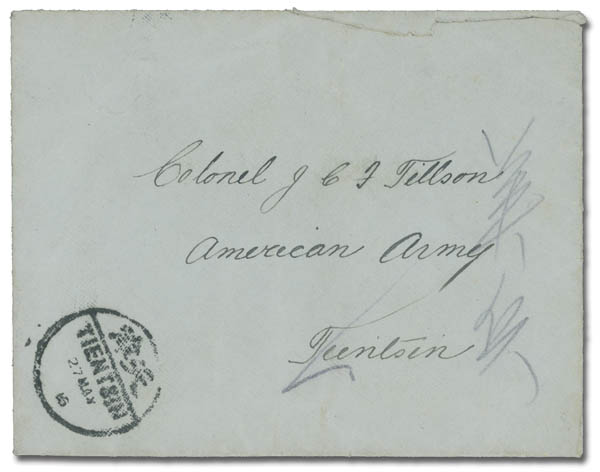 Colonel J C F Tillson
American Army
Tientsin
TIENTSIN
27 MAY